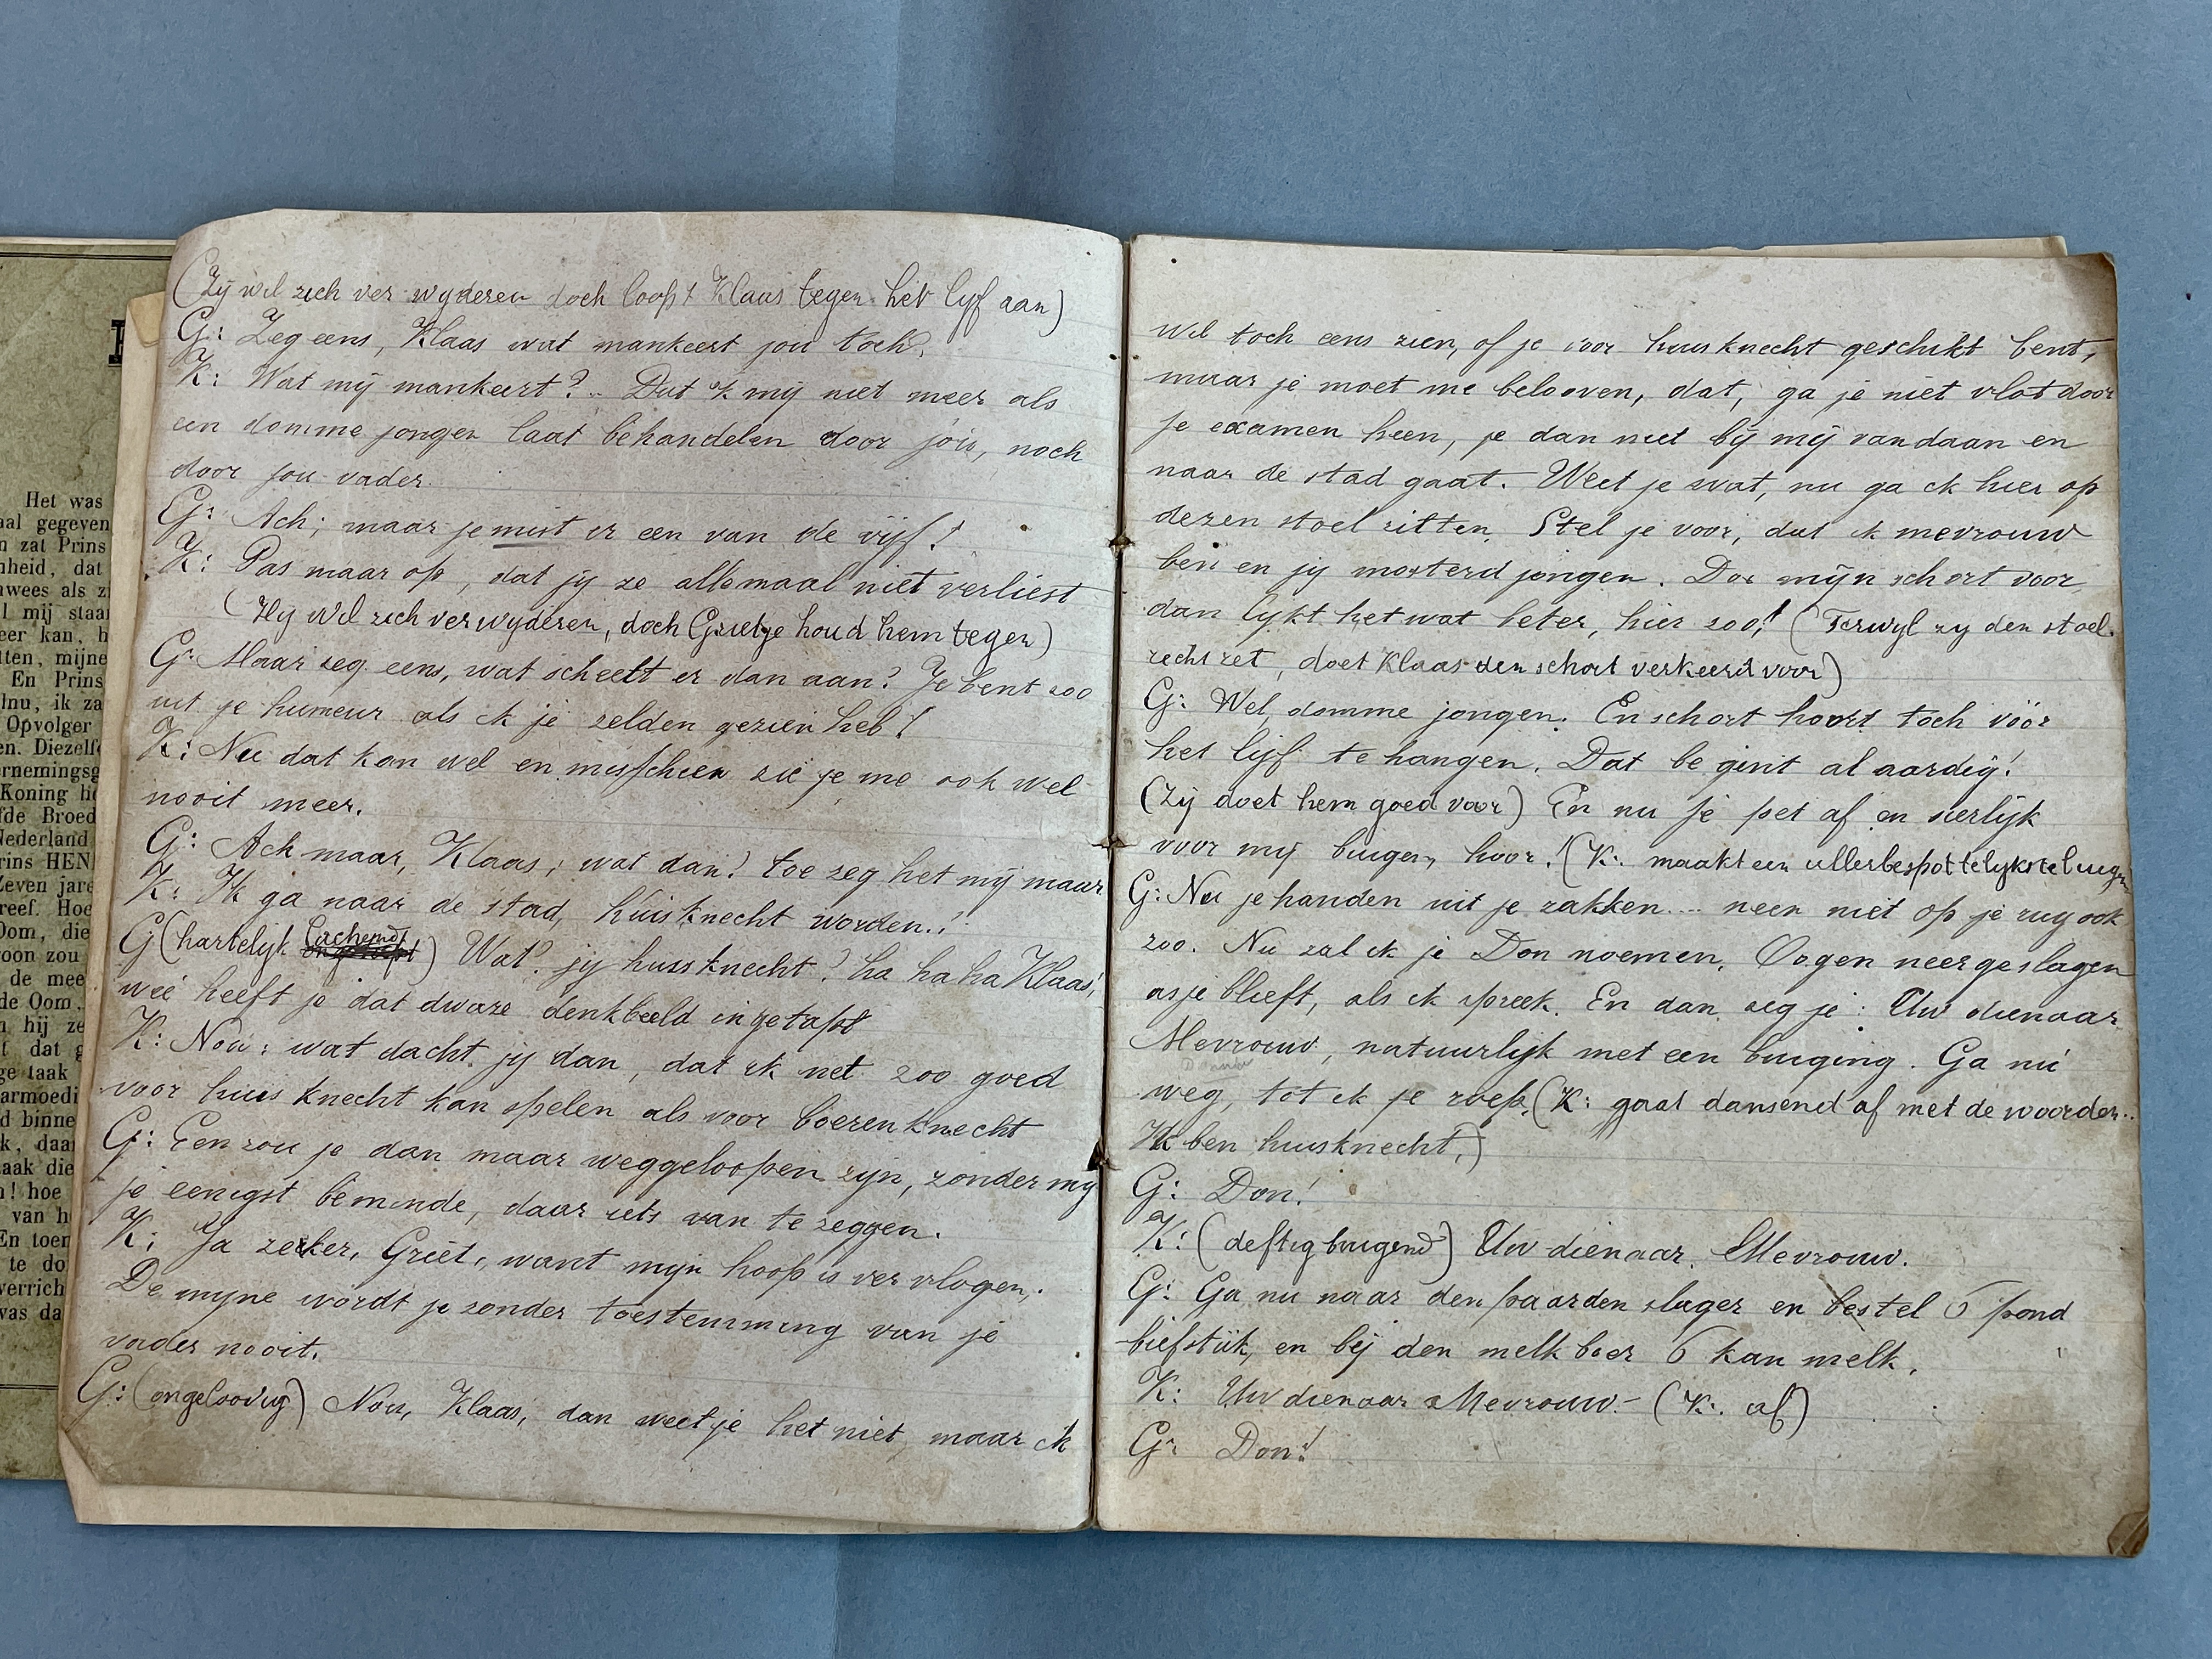 Het was
aal gegeven
n zat Prins
nheid, dat
wees als z
l mij staan
eer kan, h
tten, mijne
En Prins
lnu, ik za
Opvolger
en. Diezelf
rnemingsg
Koning h
fde Broed
Nederland
rins HEN
Zeven jare
reef. Hoe
Oom, die
oon zou
de mee
de Oom,
n hij ze
t dat g
ge taak
armoedi
d binne
k, daar
aak die
n! hoe
van h
En toen
te do
verrich
was da
(Zij wil zich verwyderen doch loopt Klaas tegen het lyf aan)
G: Zeg eens, Klaas wat mankeert jou toch?
K: Wat mij mankeert? .. Dat 'k mij niet meer als
een domme jongen laat behandelen door jou, noch
door jou vader.
G: Ach; maar je mist er een van de vijf!
K: Pas maar op, dat jij ze allemaal niet verliest
(Hij wil zich verwyderen, doch Grietje houd hem tegen)
G: Maar zeg eens, wat scheelt er dan aan? Je bent zoo
uit je humeur als ik je zelden gezien heb!
K: Nu dat kan wel en misschien zie je me ook wel
nooit meer.
G: Ach maar, Klaas, wat dan? toe zeg het mij maar
K: Ik ga naar de stad, huisknecht worden.!
G (hartelijk lachend) Wat? jij huisknecht? ha ha ha Klaas!
wie heeft je dat dwaze denkbeeld ingetapt
K: Nou: wat dacht jij dan, dat ik net zoo goed
voor huisknecht kan spelen als voor boerenknecht
G: Een zou je dan maar weggeloopen zijn, zonder mij
je eenigst beminde, daar iets van te zeggen.
K: Ja zeker, Griet, want mijn hoop is vervlogen,.
De mijne wordt je zonder toestemming van je
vader nooit.
G: (ongeloovig) Nou, Klaas, dan weet je het niet, maar ik
wil toch eens zien, of je voor huisknecht geschikt bent,
maar je moet me belooven, dat, ga je niet vlot door
je examen heen, je dan niet bij mij vandaan en
naar de stad gaat. Weet je wat, nu ga ik hier op
dezen stoel zitten. Stel je voor, dat ik mevrouw
ben en jij mosterdjongen. Doe mijn schort voor,
dan lykt het wat beter, hier zoo! (Terwyl zij den stoel
recht zet, doet Klaas den schort verkeerd voor)
G: Wel, domme jongen. En schort hoort toch vóór
het lijf te hangen. Dat begint al aardig!
(Zij doet hem goed voor) En nu je pet af en sierlijk
voor mij buigen, hoor! (K: maakt een allerbespottelykste buigen
G: Nu je handen uit je zakken.... neen niet op je rug ook
zoo. Nu zal ik je Don noemen. Oogen neergeslagen
asje blieft, als ik spreek. En dan zeg je: Uw dienaar
Mevrouw, natuurlijk met een buiging. Ga nu
weg, tot ik je roep. (K: gaat dansend af met de woorden..
Ik ben huisknecht.)
G: Don!
K: (deftig buigend) Uw dienaar. Mevrouw.
G: Ga nu naar den paardenslager en bestel 6 pond
biefstuk, en bij den melkboer 6 kan melk.
K: Uw dienaar Mevrouw.- (K: af)
G: Don!